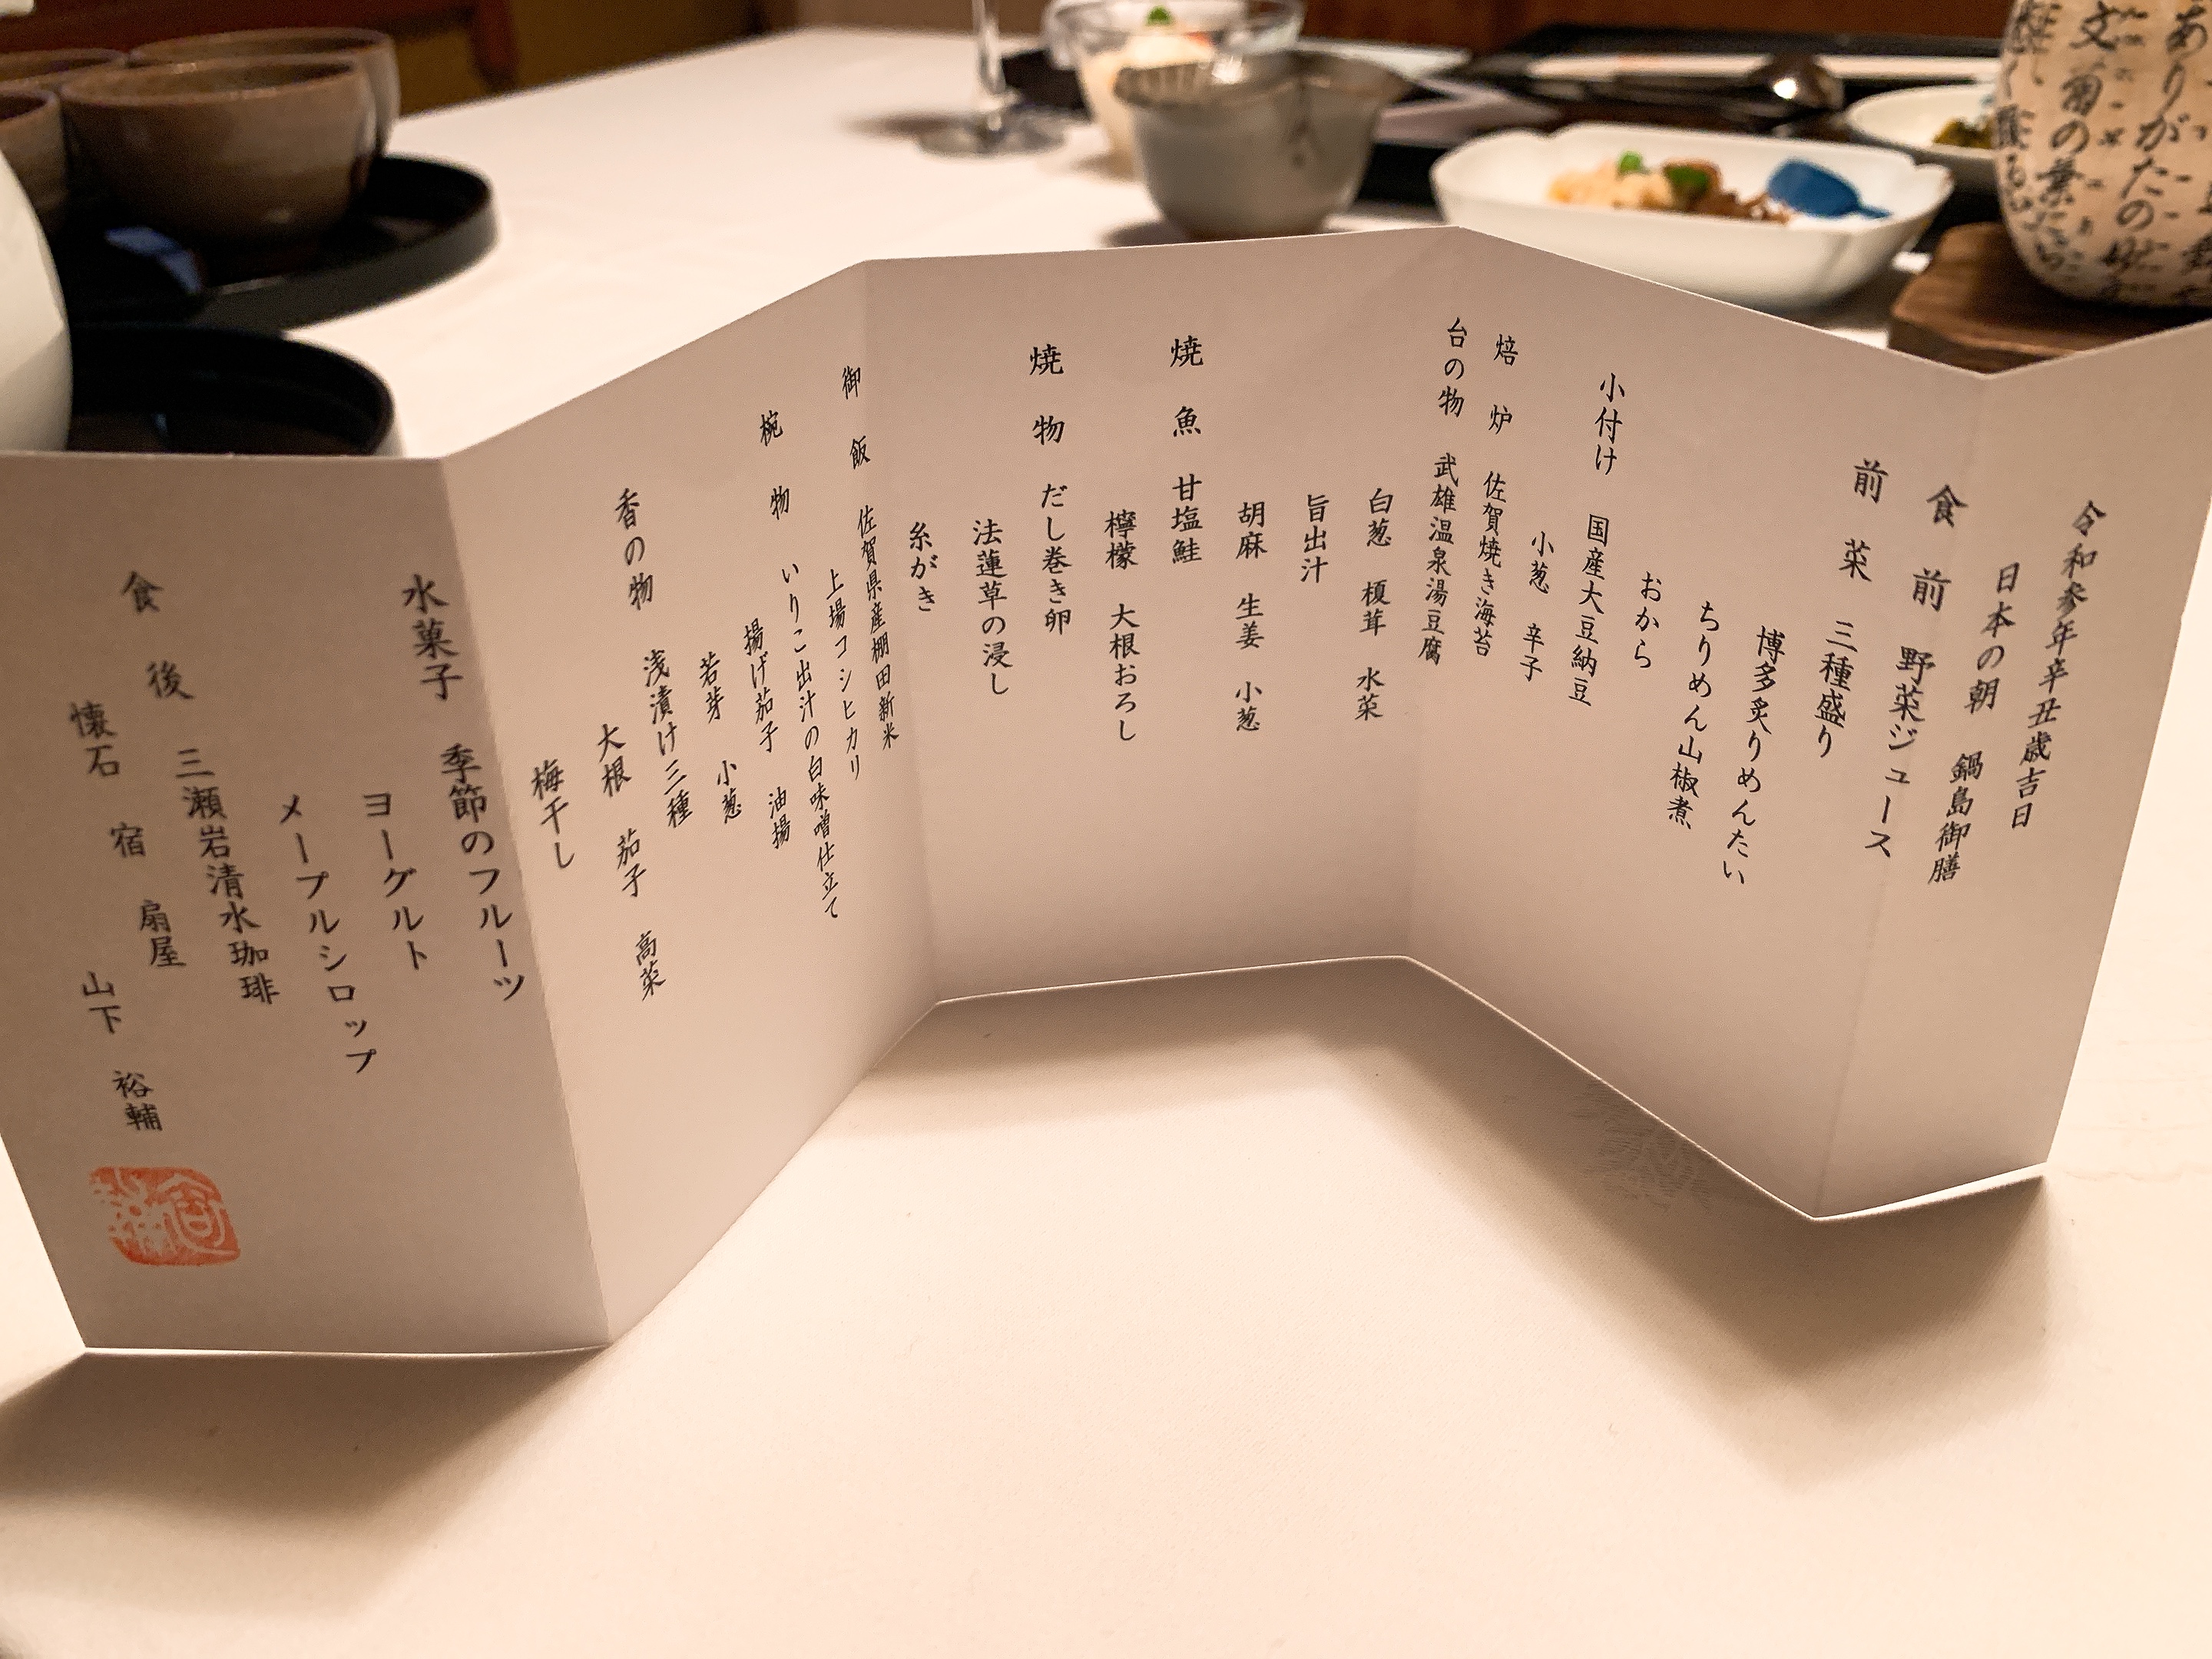 令和参年辛丑歳吉日
日本の朝　鍋島御膳
食前　野菜ジュース
前菜　三種盛り
博多炙りめんたい
ちりめん山椒煮
おから
小付け　国産大豆納豆
小葱　辛子
焙炉　佐賀焼き海苔
台の物　武雄温泉湯豆腐
白葱　榎茸　水菜
旨出汁
胡麻　生姜　小葱
焼魚　甘塩鮭
檸檬　大根おろし
焼物　だし巻き卵
法蓮草の浸し
糸がき
御飯　佐賀県産棚田新米
上場コシヒカリ
椀物　いりこ出汁の白味噌仕立て
揚げ茄子　油揚
若芽　小葱
香の物　浅漬け三種
大根　茄子　高菜
梅干し
水菓子　季節のフルーツ
ヨーグルト
メープルシロップ
食後　三瀬岩清水珈琲
懐石宿扇屋　山下裕輔